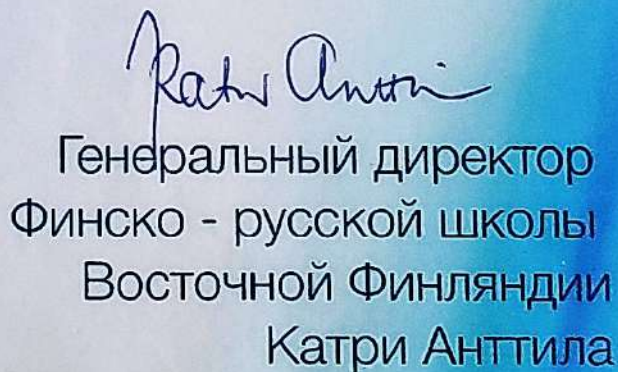 Katri Anttila
Генеральный директор
Финско - русской школы
Восточной Финляндии
Катри Анттила